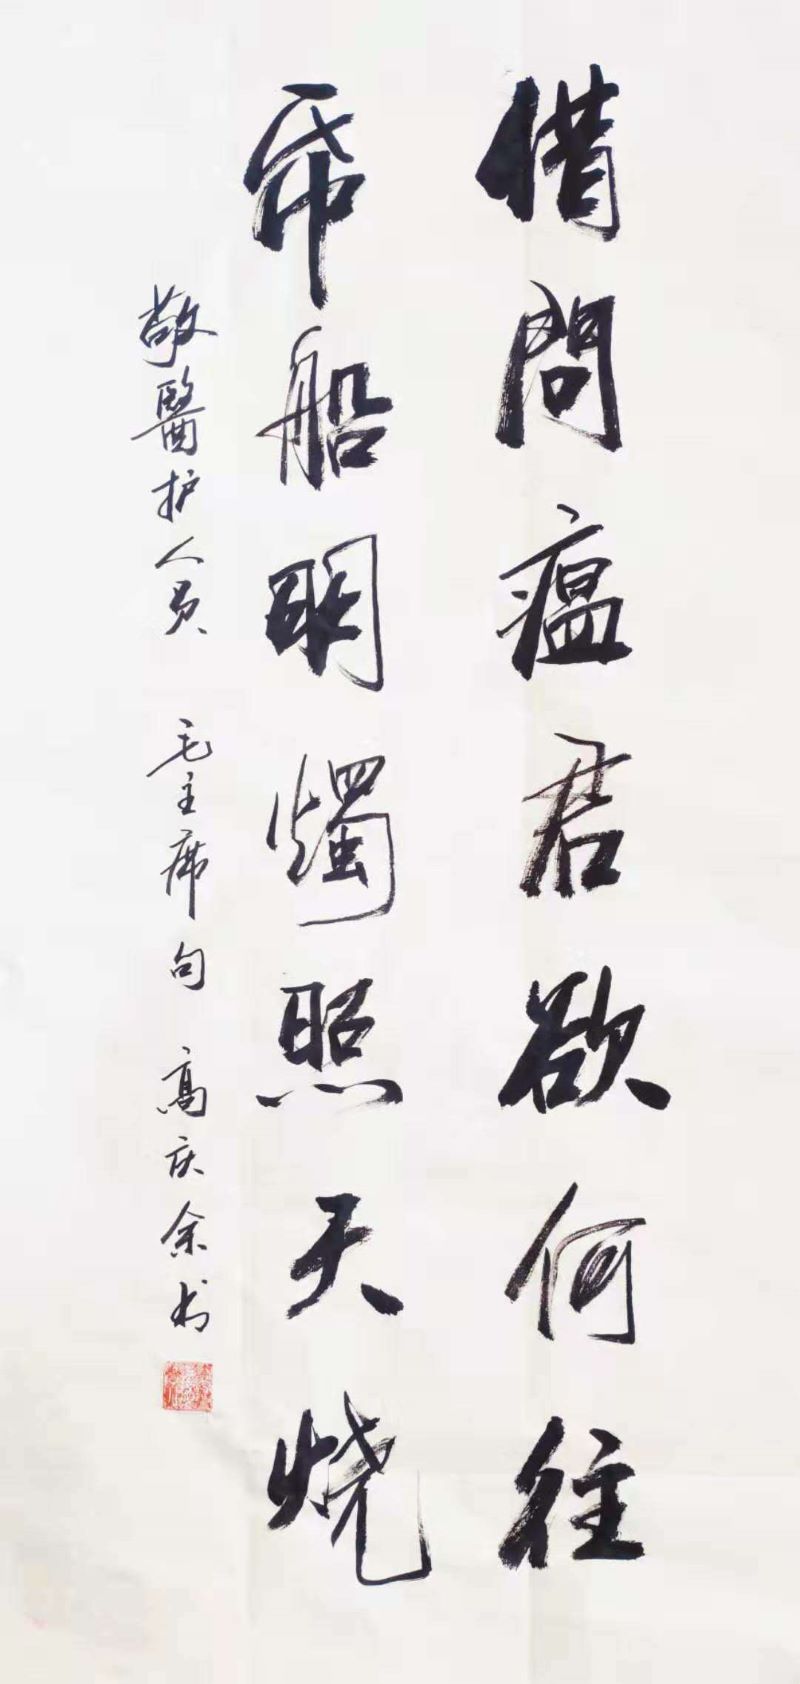 借問瘟君欲何往
帋船明燭照天烧
敬醫护人员 毛主席句 高庆余书